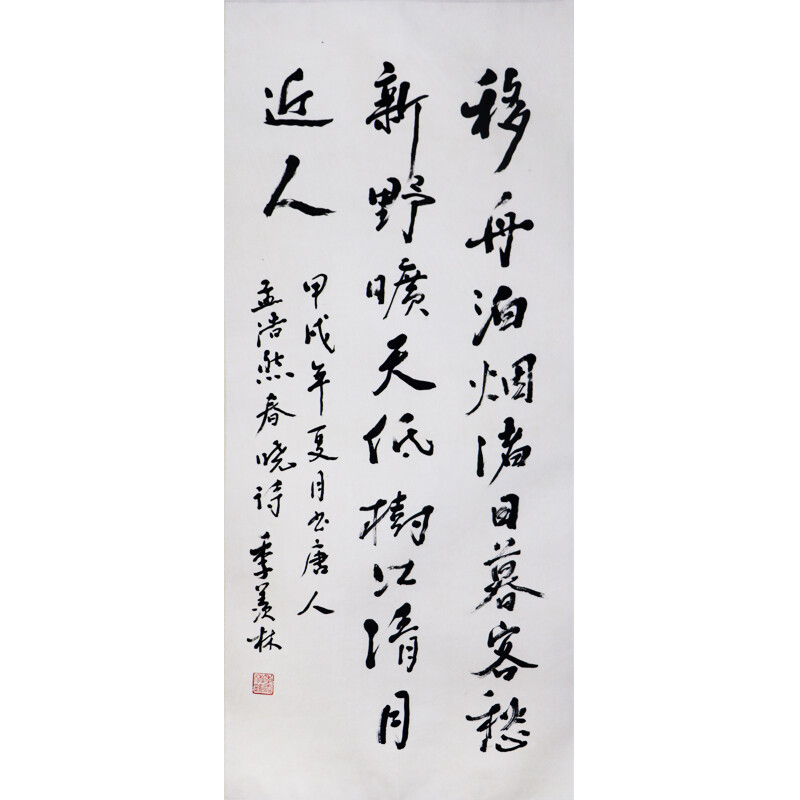 移舟泊烟渚日暮客愁
新野曠天低樹江清月
近人
甲戌年夏月书唐人
孟浩然春晓诗 季羡林